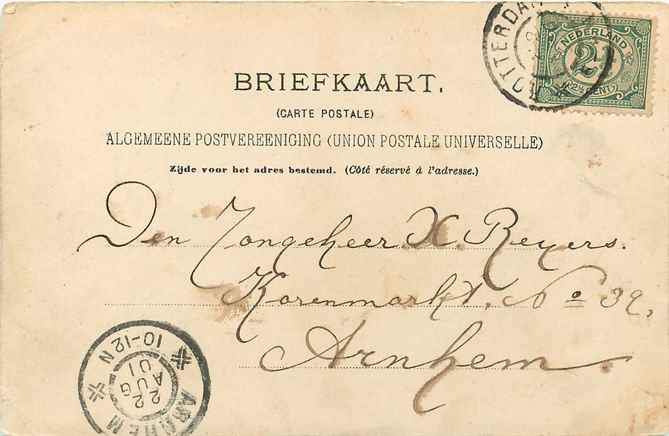 ROTTERDAM
NEDERLAND
2½
2½ CENT
BRIEFKAART.
(CARTE POSTALE)
ALGEMEENE POSTVEREENIGING (UNION POSTALE UNIVERSELLE)
Zijde voor het adres bestemd. (Côté réservé à l'adresse.)
Den Jongeheer H. Reyers.
Korenmarkt. No 39.
Arnhem.
ARNHEM
22
AUG
01
10-12N